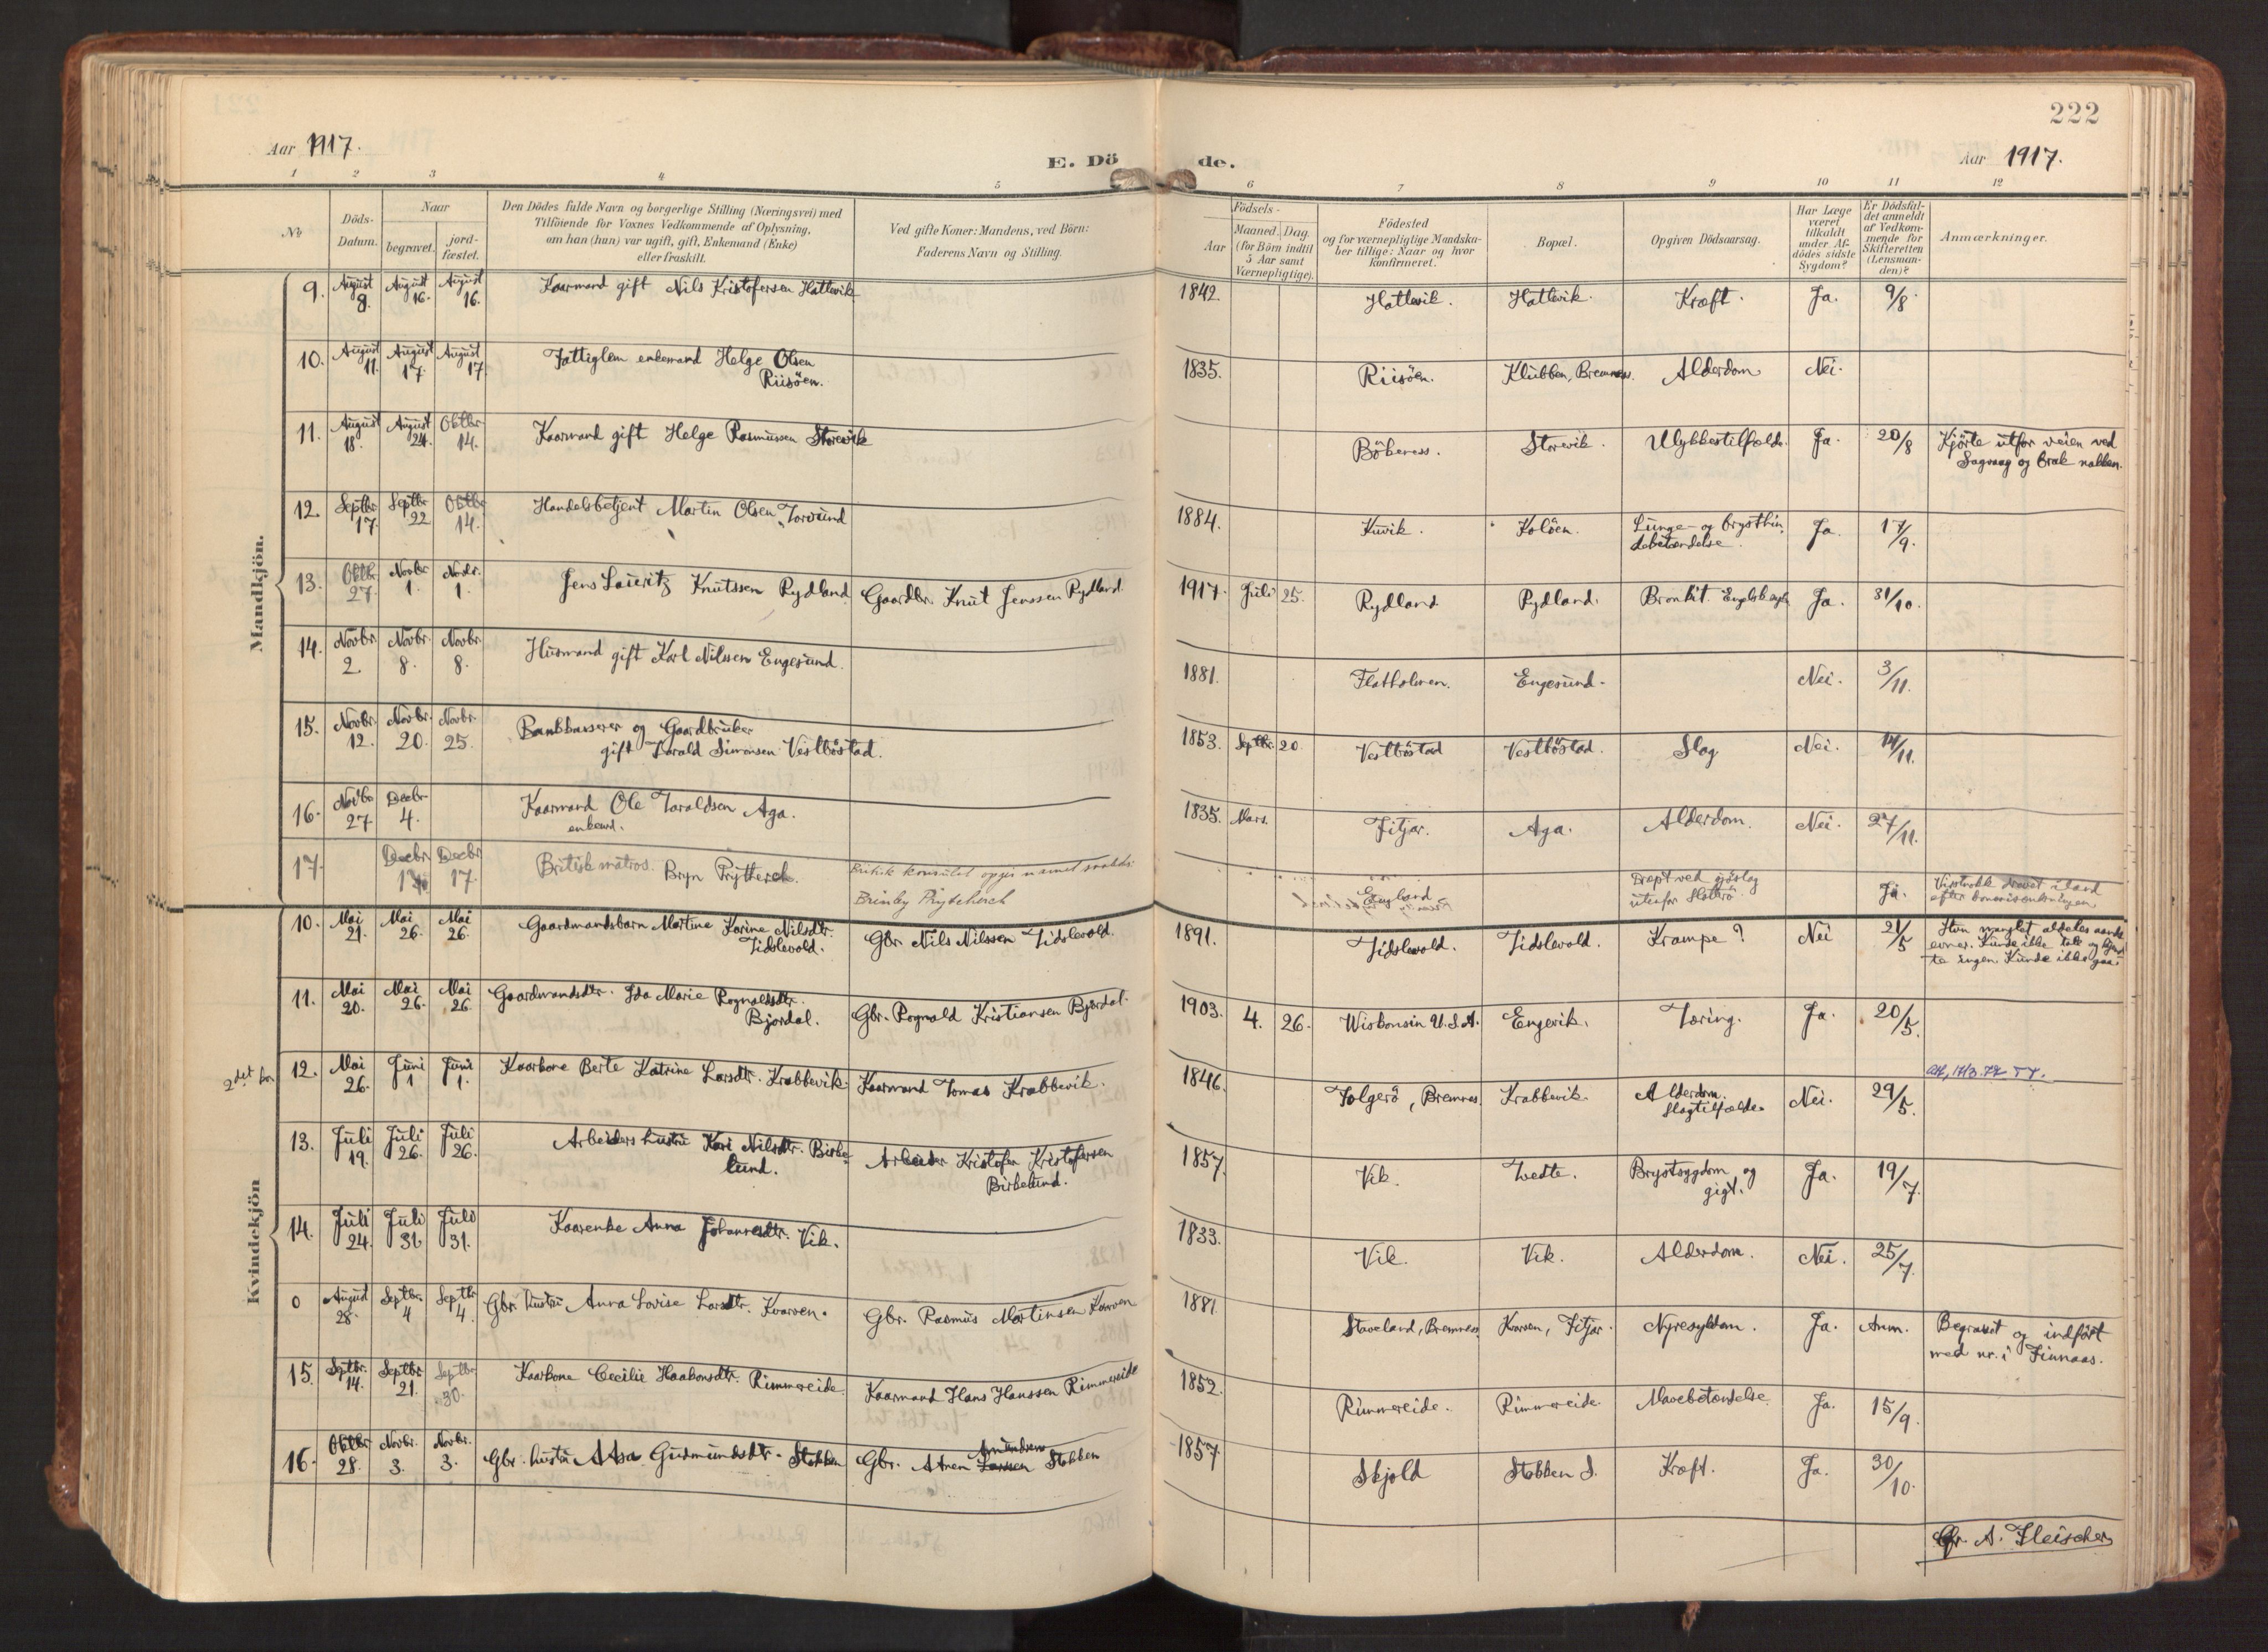 222
Aar 1917.
E. Dö de.
Aar 1917.
1 2 3 4 5 6 7 8 9 10 11 12
No
Döds-
Datum.
Naar
begravet.
jord-
fæstet.
Den Dödes fulde Navn og borgerlige Stilling (Næringsvei) med
Tilföiende for Voxnes Vedkommende af Oplysning,
om han (hun) var ugift, gift, Enkemand (Enke)
eller fraskilt.
Ved gifte Koner: Mandens, ved Börn:
Faderens Navn og Stilling.
Födsels-
Aar
Maaned. Dag.
(for Börn indtil
5 Aar samt
Værnepligtige).
Födested
og for værnepligtige Mandska-
ber tillige: Naar og hvor
konfirmeret.
Bopæl.
Opgiven Dödsaarsag.
Har Læge
været
tilkaldt
under Af-
dödes sidste
Sygdom?
Er Dödsfal-
det anmeldt
af Vedkom-
mende for
Skifteretten
(Lensman-
den)?
Anmærkninger.
Mandkjön.
9. August 9. August 16. August 16. Kaarmand gift Nils Kristofersen Hatlevik 1842. Hatlevik. Hatlevik. Kræft. Ja. 9/8
10. August 11. August 17 August 17. Fattiglem enkemand Helge Olsen
Riisöen. 1835. Riisöen. Klubben, Bremnes. Alderdom Nei.
11. August 18. August 24. Oktbr. 14. Kaarmand gift Helge Rasmussen Storevik Bökeness. Storevik. Ulykkestilfælde. Ja. 20/8 Kjörte utfor veien ved
Sagvaag og brak nakken.
12. Septbr. 17. Septbr. 22 Oktbr 14. Handelsbetjent Martin Olsen Torsund 1884. Kuvik. Kolöen. Lunge- og brysthin-
debetændelse. Ja. 17/9.
13. Oktbr. 27. Novbr. 1. Novbr. 1. Jens Lauritz Knutssen Rydland Gaardbr. Knut Jenssen Rydland. 1917. Juli 25. Rydland Rydland. Bronkit. Ja. 31/10.
14. Novbr. 2. Novbr. 8. Novbr. 8. Husmand gift Karl Nilssen Engesund. 1881. Flatholmen. Engesund. Nei. 3/11.
15. Novbr. 12. Novbr. 20. Novbr. 25. Bankkasserer og Gaardbruker
gift Harald Simonsen Vestböstad. 1853. Septbr. 20. Vestböstad Vestböstad. Slag Nei. 14/11.
16. Novbr 27. Decbr. 4. Kaarmand Ole Taraldsen Aga.
enkemd. 1835. Mars. Fitjar. Aga. Alderdom. Nei. 27/11.
17. Decbr Decbr 17. Britisk matros. Bryn Prytherch. Britisk konsulat opgir navnet
England Dræpt ved sjöslag
utenfor Ja. drevet iland
efter
Kvindekjön
10. Mai 21. Mai 26. Mai 26. Gaardmandsbarn Martine Karine Nilsdtr.
Tidslevold. Gbr. Nils Nilssen Tidslevold. 1891. Tidslevold. Tidslevold. Krampe? Nei 21/5 Hun manglet aldeles aands
evner. Kunde ikke tale og kjend-
te ingen. Kunde ikke gaa.
11. Mai 20. Mai 26. Mai 26. Gaardmandsdtr. Ida Marie Rognaldsdtr.
Bjordal. Gbr. Rognald Kristiansen Bjordal. 1903. 4. 26. Wiskonsin U.S.A. Engevik. Tæring. Ja. 20/5.
12. Mai 26. Juni 1 Juni 1. Kaarkone Berte Katrine Larsdtr. Krabbevik. Kaarmand Tomas Krabbevik. 1846. Folgerö, Bremnes. Krabbevik. Alderdom.
slagtilfælde. Nei. 29/5.
13. Juli 19. Juli 26. Juli 26. Arbeiders hustru Kari Nilsdtr. Birke-
lund. Arbeider Kristofer Kristofersen
Birkelund. 1857. Vik. Tvedte. Brystsygdom og
gigt. Ja. 19/7.
14. Juli 24. Juli 31 Juli 31. Kaarenke Anna Johannesdtr. Vik. 1833. Vik. Vik. Alderdom. Nei. 25/7.
0 August 28. Septbr. 4 Septbr 4. Gbr. hustru Anna Lovise Larsdtr. Kvarven. Gbr. Rasmus Martinsen Kvarven 1881. Staveland, Bremnes. Kvarven, Fitjar. Nyresykdom. Ja. Anm. Begravet og indfört
med nr. i Finnaas.
15. Septbr. 14. Septbr. 21. Septbr. 30. Kaarkone Cecilie Haakonsdtr. Rimmereide. Kaarmand Hans Hanssen Rimmereide 1852. Rimmereide. Rimmereide. Mavebetændelse. Ja. 15/9.
16. Oktbr 28. Novbr. 3. Novbr. 3. Gbr. hustru Asa Gudmundsdtr. Stokken Gbr. Larsen Stokken 1857. Skjold Stokken S. Kræft. Ja. 30/10.
A. Fleischer